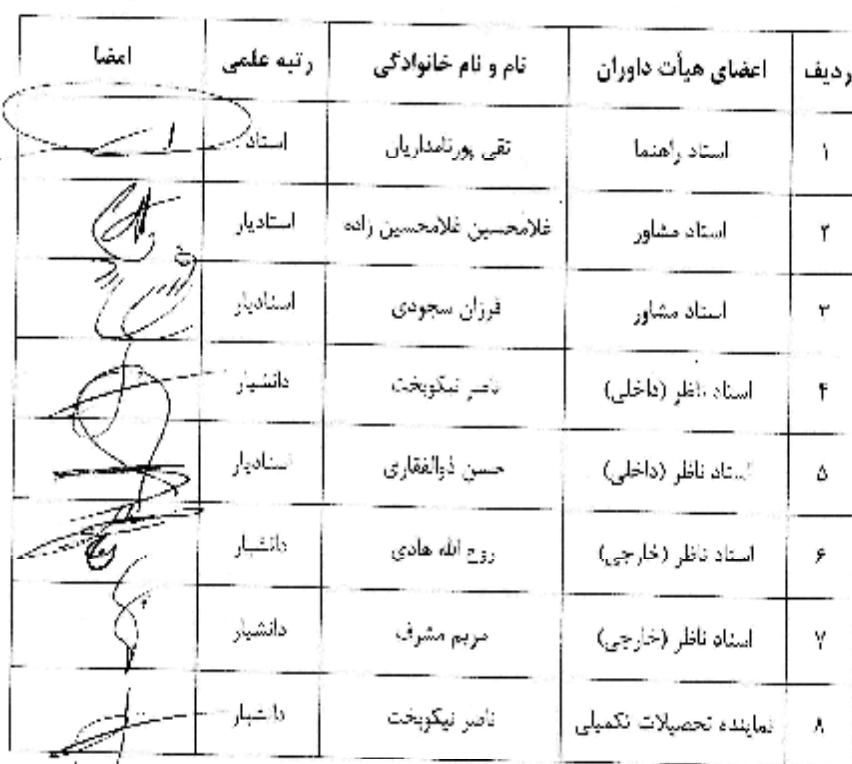 ردیف اعضای هیأت داوران نام و نام خانوادگی رتبه علمی امضا
۱ استاد راهنما تقی پورنامداریان استاد
۲ استاد مشاور غلامحسین غلامحسین زاده استادیار
۳ استاد مشاور فرزان سجودی استادیار
۴ استاد ناظر (داخلی) ناصر نیکوبخت دانشیار
۵ استاد ناظر (داخلی) حسن ذوالفقاری استادیار
۶ استاد ناظر (خارجی) روح الله هادی دانشیار
۷ استاد ناظر (خارجی) مریم مشرف دانشیار
۸ نماینده تحصیلات تکمیلی ناصر نیکوبخت دانشیار